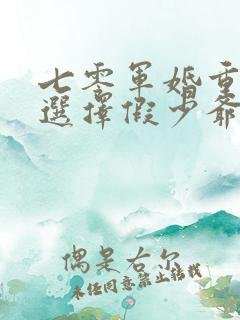 七零軍婚重
選擇假少爺
偶是右尔
未经同意禁止转载